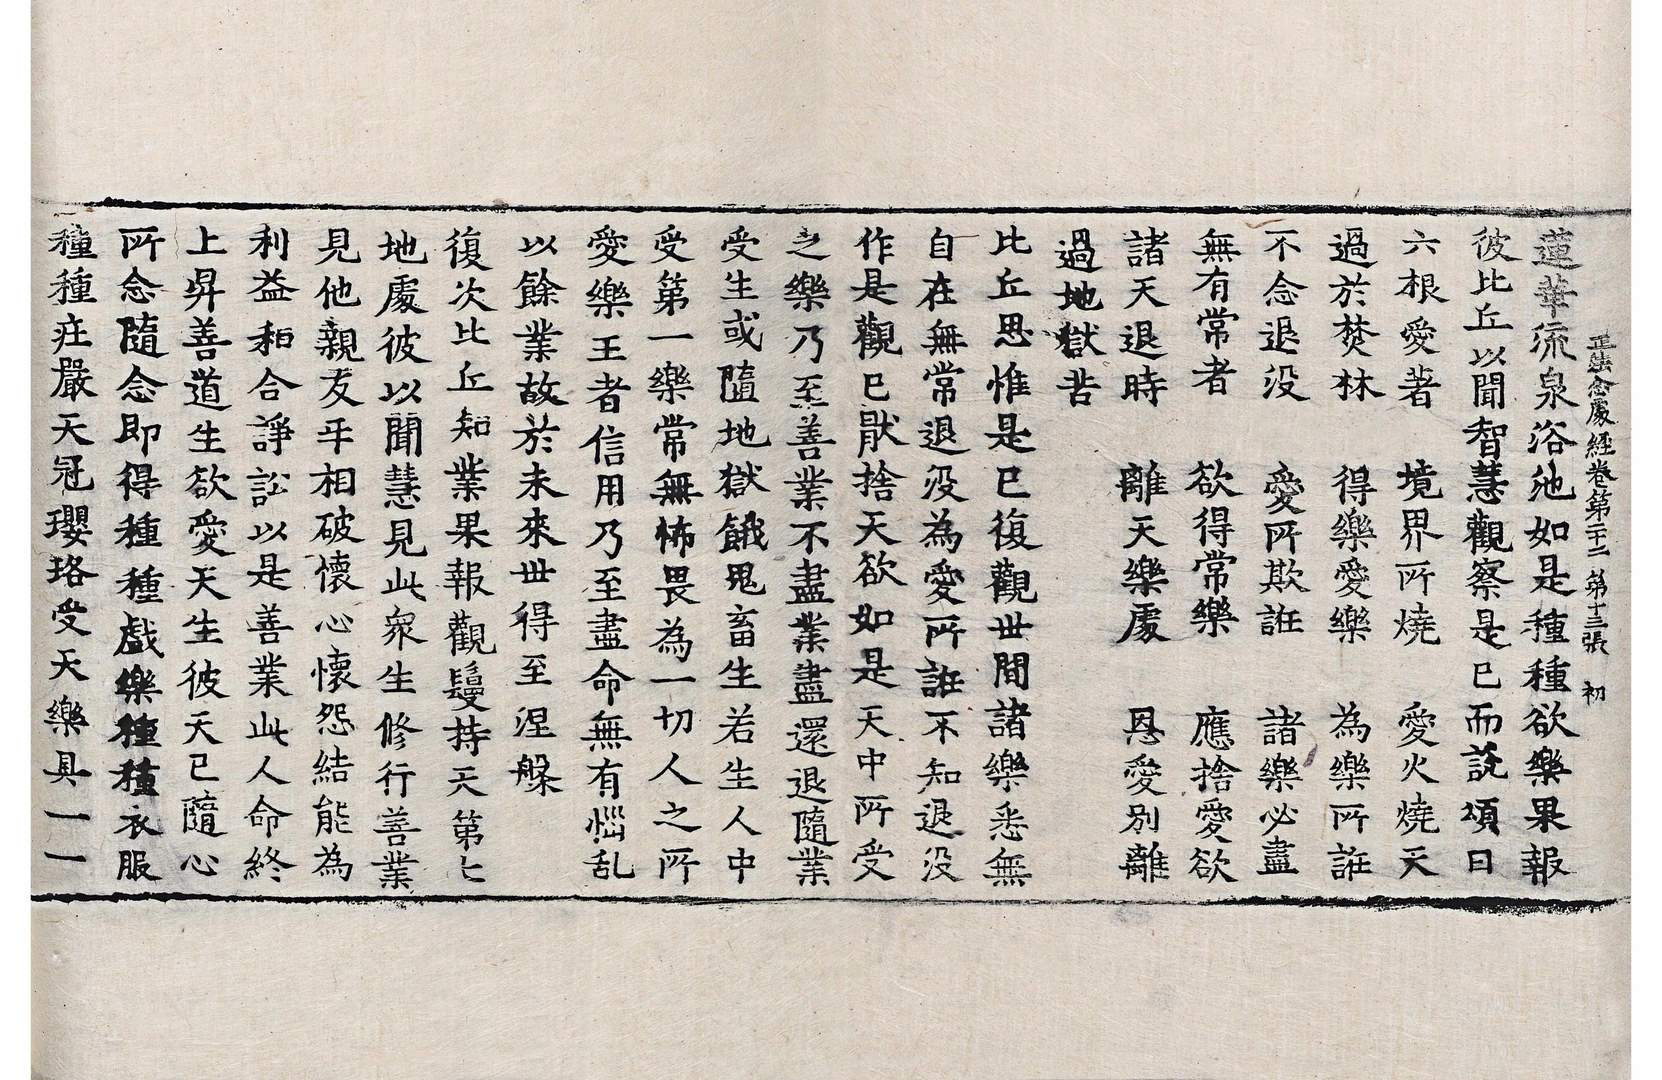 正法念處經卷第二十二 第十三張 初
蓮華流泉浴池如是種種欲樂果報
彼比丘以聞智慧觀察是已而說頌曰
六根愛著 境界所燒 愛火燒天
過於焚林 得樂愛樂 為樂所誑
不念退没 愛所欺誑 諸樂必盡
無有常者 欲得常樂 應捨愛欲
諸天退時 離天樂處 恩愛別離
過地獄苦
比丘思惟是已復觀世間諸樂悉無
自在無常退没為愛所誑不知退没
作是觀已猒捨天欲如是天中所受
之樂乃至善業不盡業盡還退隨業
受生或隨地獄餓鬼畜生若生人中
受第一樂常無怖畏為一切人之所
愛樂王者信用乃至盡命無有惱乱
以餘業故於未來世得至涅槃
復次比丘知業果報觀鬘持天第七
地處彼以聞慧見此衆生修行善業
見他親友平相破懷心懷怨結能為
利益和合諍訟以是善業此人命終
上昇善道生欲愛天生彼天已隨心
所念隨念即得種種戲樂種種衣服
種種庄嚴天冠瓔珞受天樂具一一